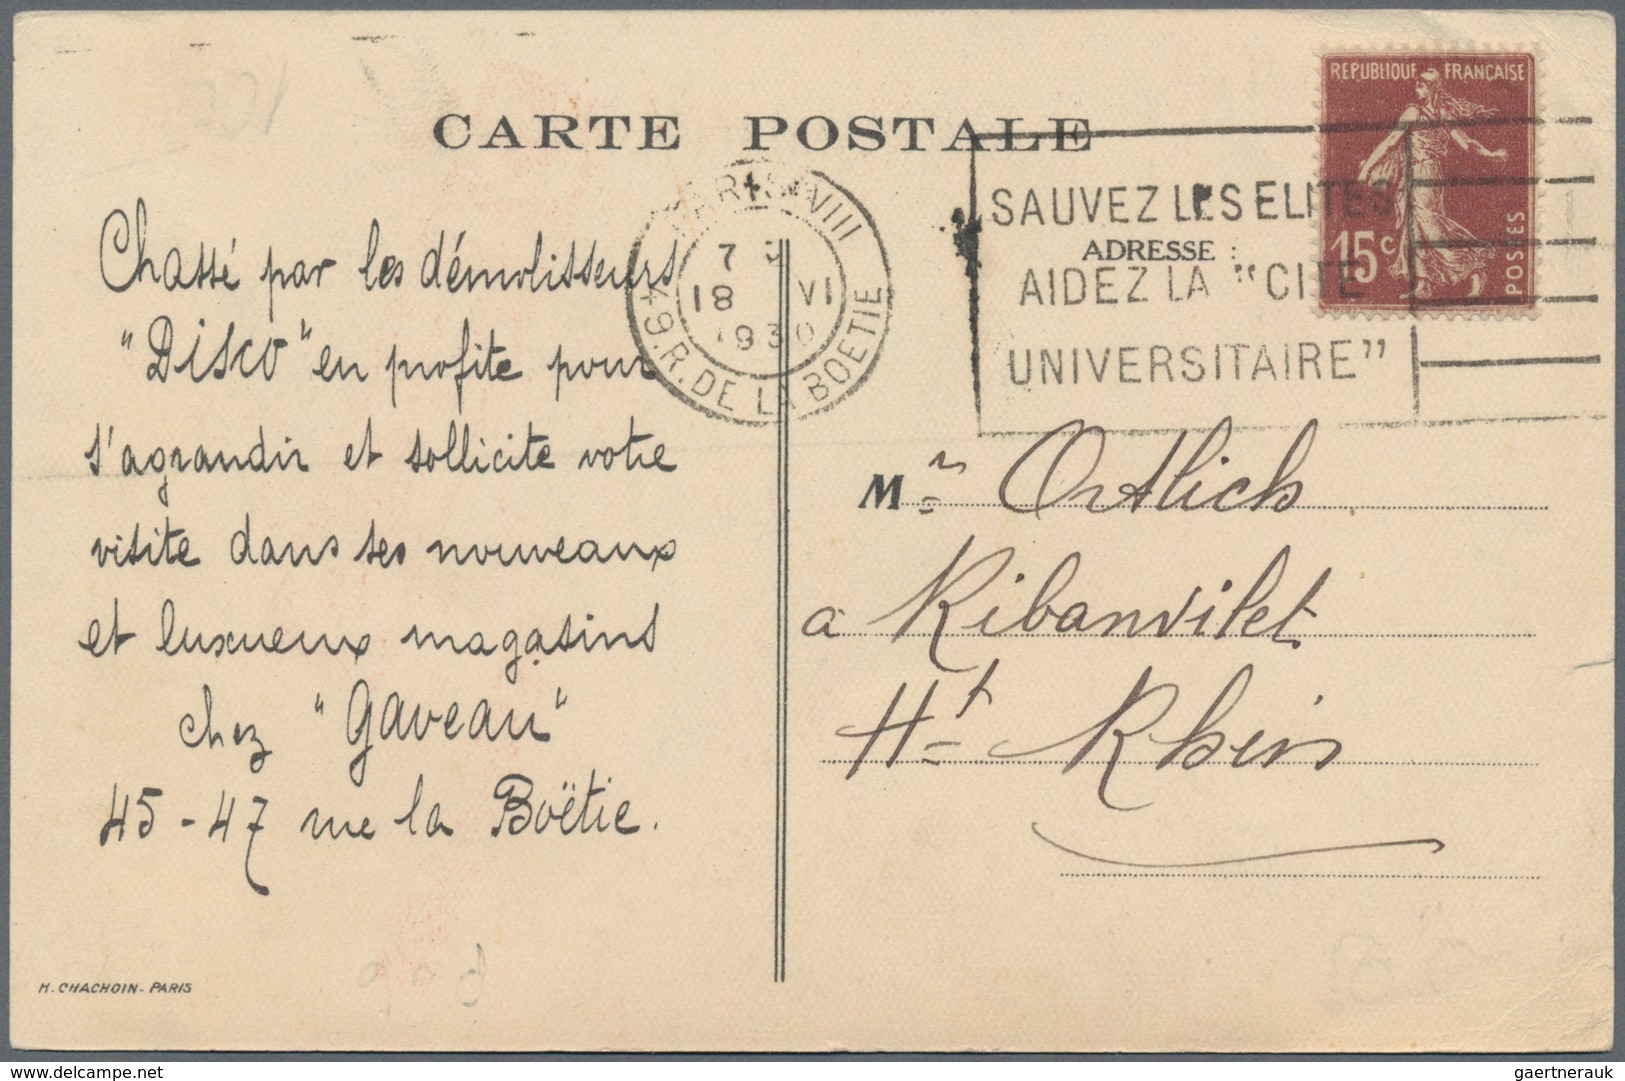 CARTE POSTALE
REPUBLIQUE FRANÇAISE
15c
POSTES
PARIS VIII
7
18 VI
1930
49. R. DE LA BOETIE
SAUVEZ LES ELITES
AIDEZ LA "CITE
UNIVERSITAIRE"
ADRESSE :
Chassé par les démolisseurs
"Disco" en profite pour
s'agrandir et sollicite votre
visite dans ses nouveaux
et luxueux magasins
chez "Gaveau"
45-47 rue la Boëtie.
Mr Ortlieb
a Ribanvilet
Ht Rhin
H. CHACHOIN - PARIS
www.delcampe.net
gaertnerauk